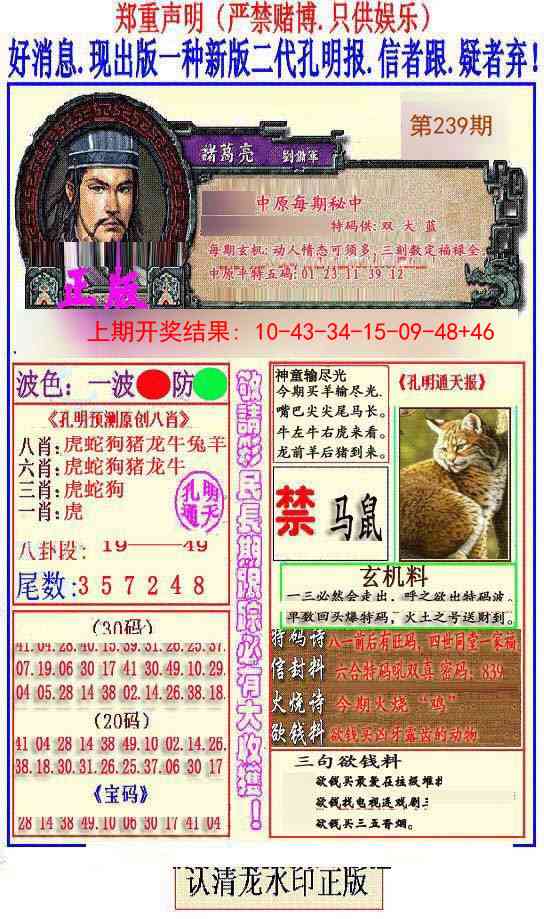 郑重声明（严禁赌博.只供娱乐）
好消息.现出版一种新版二代孔明报.信者跟.疑者弃!
第239期
諸葛亮 劉備軍
中原每期秘中
特码供:双 大 蓝
每期玄机:动人情态可须多,三刻数定福禄全.
中原平特五码:01 23 11 39 12
正版
上期开奖结果: 10-43-34-15-09-48+46
波色: 一波 防
《孔明预测原创八肖》
八肖:虎蛇狗猪龙牛兔羊
六肖:虎蛇狗猪龙牛
三肖:虎蛇狗
一肖:虎
孔明通天
八卦段: 19——49
尾数:3 5 7 2 4 8
(30码)
41.04.28.40.15.39.31.26.25.37.
07.19.06.30 17 41 30.49.10.29.
04 05.28 14 38 02.14.26 38.18.
(20码)
41 04 28 14 38 49.10 02.14.26.
38.18.30.31.26.25.37.06 30 17
《宝码》
28 14 38 49.10 06 30 17 41 04
敬請彩民長期跟踪必有大收獲！
神童输尽光
今期买羊输尽光.
嘴巴尖尖尾马长。
牛左牛右虎来看。
龙前羊后猪到来。
《孔明通天报》
禁 马鼠
玄机料
一三必然会走出，呼之欲出特码波。
早数回头爆特码，火土之号送财到。
特码诗 八一前后有正码，四世同堂一家福
信封料 六合特码吼双真 密码：839
火烧诗 今期火烧“鸡”
欲钱料 欲钱买凶牙露齿的动物
三句欲钱料
欲钱买最爱在垃圾堆扌
欲钱找电视连戏剧三
欲钱买三五香烟。
认清龙水印正版